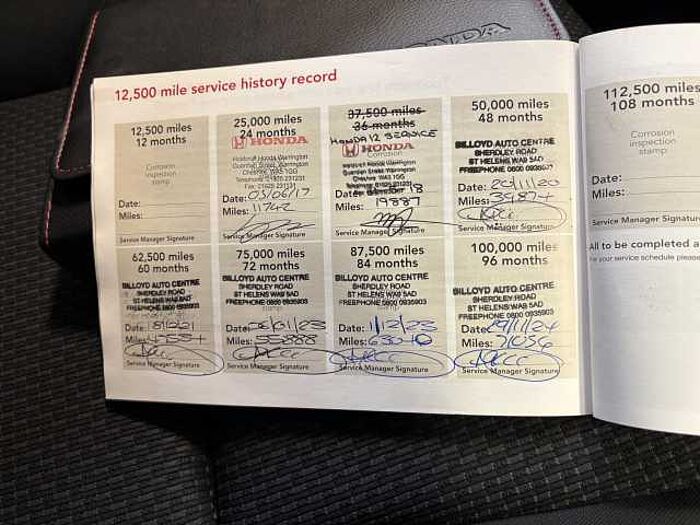 HONDA
12,500 mile service history record
12,500 miles
12 months
Corrosion
inspection
stamp
Date:
Miles:
Service Manager Signature
25,000 miles
24 months
HONDA
Holdcroft Honda Warrington
Cheshire WA5 1GG
Telephone: 01925 231231
Date: 05/06/17
Miles: 11742
Service Manager Signature
37,500 miles
36 months
HONDA 12 SERVICE
HONDA
Holdcroft Honda Warrington
Cheshire WA5 1GG
18
19887
Service Manager Signature
50,000 miles
48 months
BILLOYD AUTO CENTRE
SHERDLEY ROAD
ST HELENS WA9 5AD
FREEPHONE 0800 0935903
Date: 20/11/20
Miles:
Service Manager Signature
62,500 miles
60 months
BILLOYD AUTO CENTRE
SHERDLEY ROAD
ST HELENS WA9 5AD
FREEPHONE 0800 0935903
Date:
Miles:
Service Manager Signature
75,000 miles
72 months
BILLOYD AUTO CENTRE
SHERDLEY ROAD
ST HELENS WA9 5AD
FREEPHONE 0800 0935903
Date:
Miles: 55888
Service Manager Signature
87,500 miles
84 months
BILLOYD AUTO CENTRE
SHERDLEY ROAD
ST HELENS WA9 5AD
FREEPHONE 0800 0935903
Date: 1/12/23
Miles: 63040
Service Manager Signature
100,000 miles
96 months
BILLOYD AUTO CENTRE
SHERDLEY ROAD
ST HELENS WA9 5AD
FREEPHONE 0800 0935903
Date: 29/11/24
Miles: 71056
Service Manager Signature
112,500 miles
108 months
Corrosion
inspection
stamp
Date:
Miles:
Service Manager Signature
All to be completed a
your service schedule please